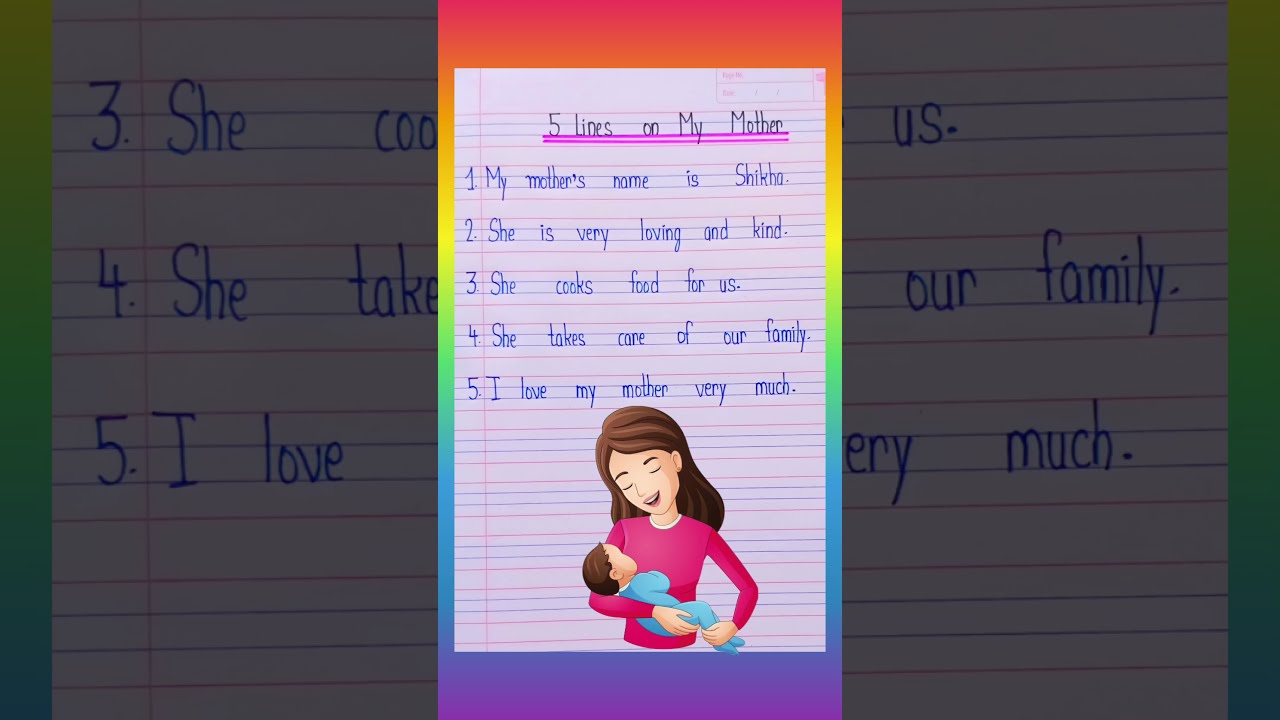 Page No.
Date: / /
5 Lines on My Mother
1. My mother's name is Shikha.
2. She is very loving and kind.
3. She cooks food for us.
4. She takes care of our family.
5. I love my mother very much.
3. She coo
us.
4. She take
our family.
5. I love
ery much.